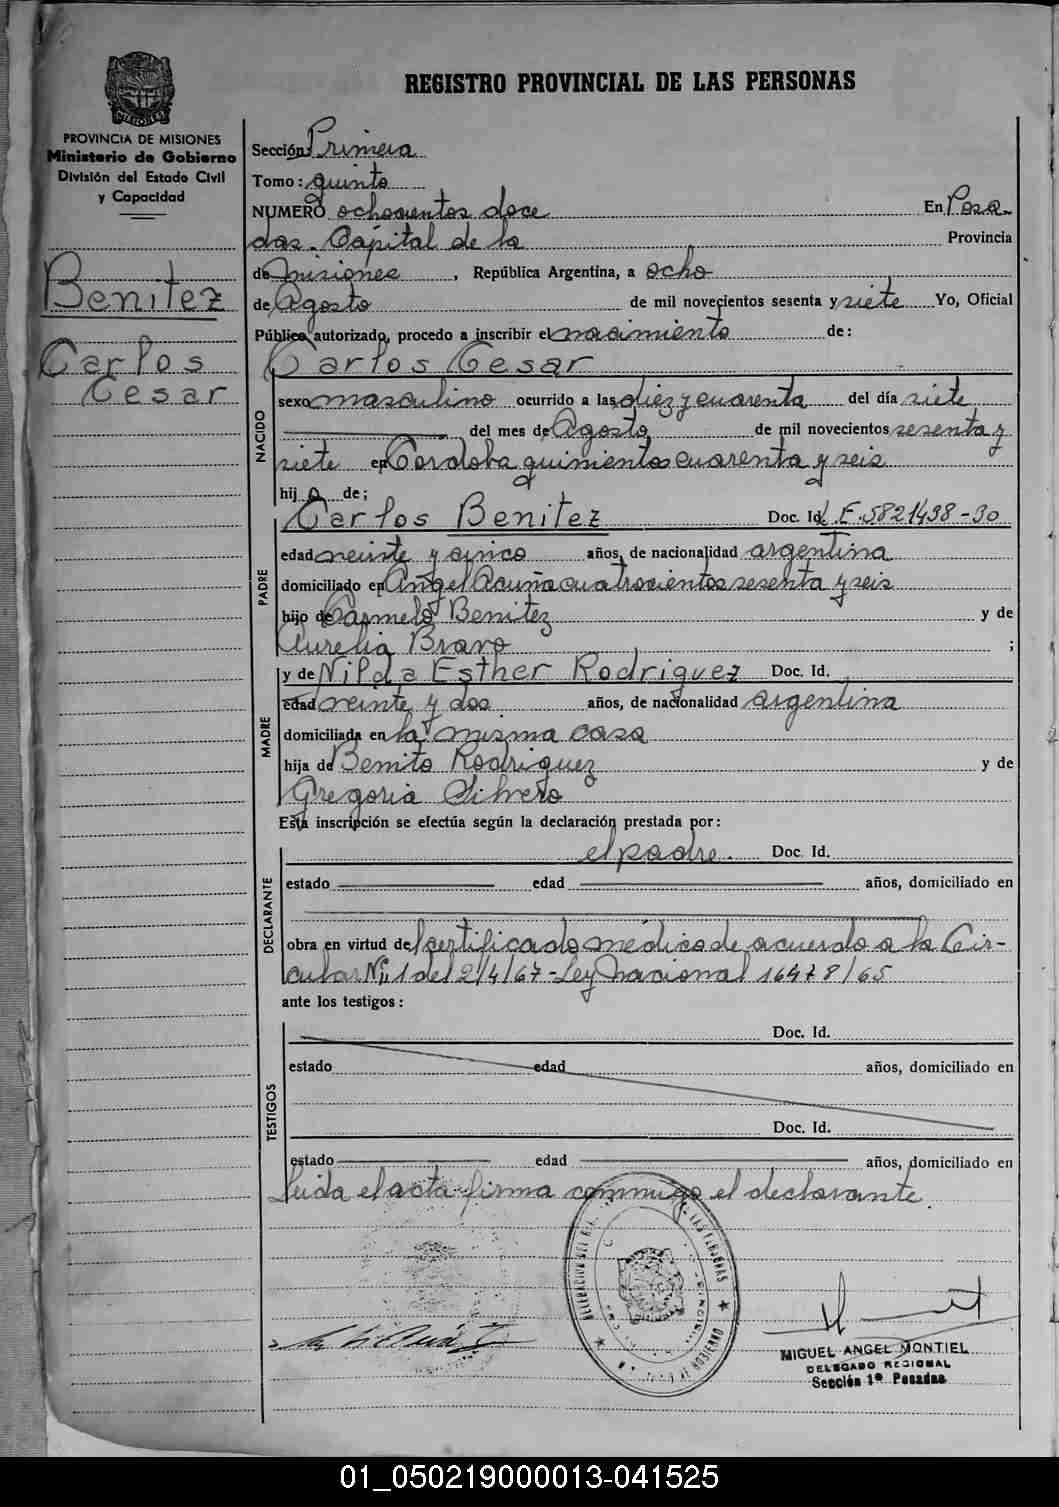 REGISTRO PROVINCIAL DE LAS PERSONAS
MISIONES
PROVINCIA DE MISIONES
Ministerio de Gobierno
División del Estado Civil
y Capacidad
Benitez
Carlos
Cesar
Sección Primera
Tomo: quinto
NUMERO ochocientos doce En Posa-
das. Cápital de la Provincia
de misiones, República Argentina, a ocho
de Agosto de mil novecientos sesenta y siete Yo, Oficial
Público autorizado, procedo a inscribir el nacimiento de:
Carlos Cesar
NACIDO
sexo masculino ocurrido a las diez y cuarenta del día siete
del mes de Agosto de mil novecientos sesenta y
siete en Cordoba quinientos cuarenta y seis
hijo de;
Carlos Benitez Doc. Id. L.E. 5821438-30
PADRE
edad veinte y cinco años, de nacionalidad argentina
domiciliado en Angel Acuña cuatrocientos sesenta y seis
hijo de Carmelo Benitez y de
Aurelia Bravo ;
y de Nilda Esther Rodriguez Doc. Id.
MADRE
edad veinte y dos años, de nacionalidad argentina
domiciliada en la misma casa
hija de Benito Rodriguez y de
Gregoria Silvero
Esta inscripción se efectúa según la declaración prestada por:
el padre. Doc. Id.
DECLARANTE
estado edad años, domiciliado en
obra en virtud del certificado médico de acuerdo a la Cir-
cular Nº 1 del 2/4/67-Ley nacional 16478/65
ante los testigos:
Doc. Id.
TESTIGOS
estado edad años, domiciliado en
Doc. Id.
estado edad años, domiciliado en
Leida el acta firma conmigo el declarante.
MIGUEL ANGEL MONTIEL
DELEGADO REGIONAL
Sección 1ª Posadas
01_050219000013-041525